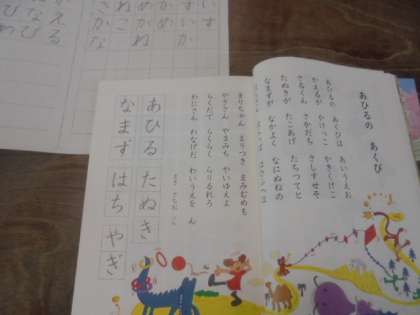 あひるの　あくび
あひるの　あくびは　あいうえお
かえるが　かけっこ　かきくけこ
さるくん　さかだち　さしすせそ
たぬきが　たこあげ　たちつてと
なまずが　なかよく　なにぬねの
まりちゃん　まりつき　まみむめも
やぎさん　やまみち　やいゆえよ
らくだで　らくらく　らりるれろ
わにさん　わなげだ　わいうえを　ん
あひる　たぬき
なまず　はち　やぎ
いす
すいか
かめ
めがね
ねこ
さかな
かえる